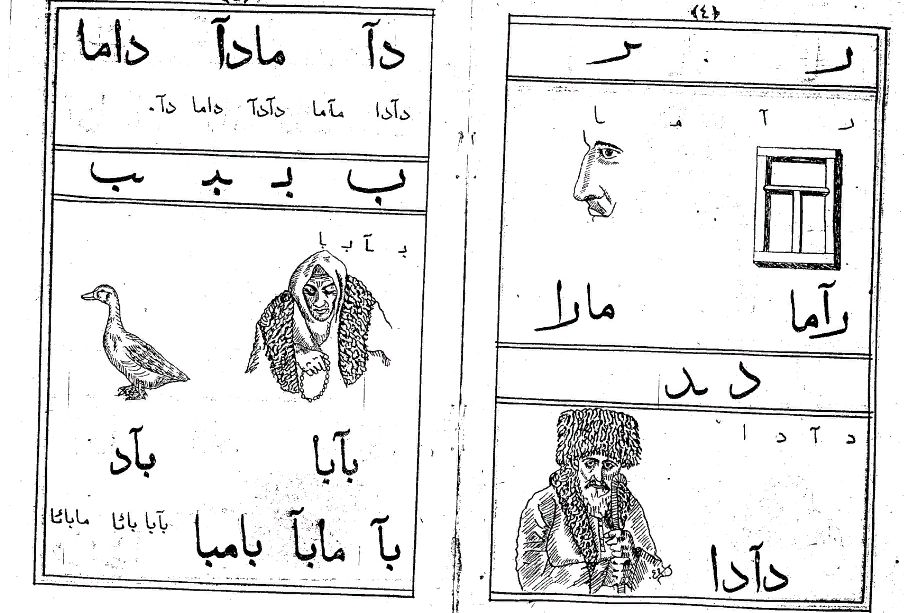 ﴿٤﴾
ر ـر
ر آ مـ ـا
رآما مارا
د ـد
د آ د ا
دآدا
دآ مادآ داما
دآدا مآما دآدآ داما دآ.
ب بـ ـبـ ـب
بـ آ بـ ـا
بآبا بآد
بآ مابآ بامبا
بآبا